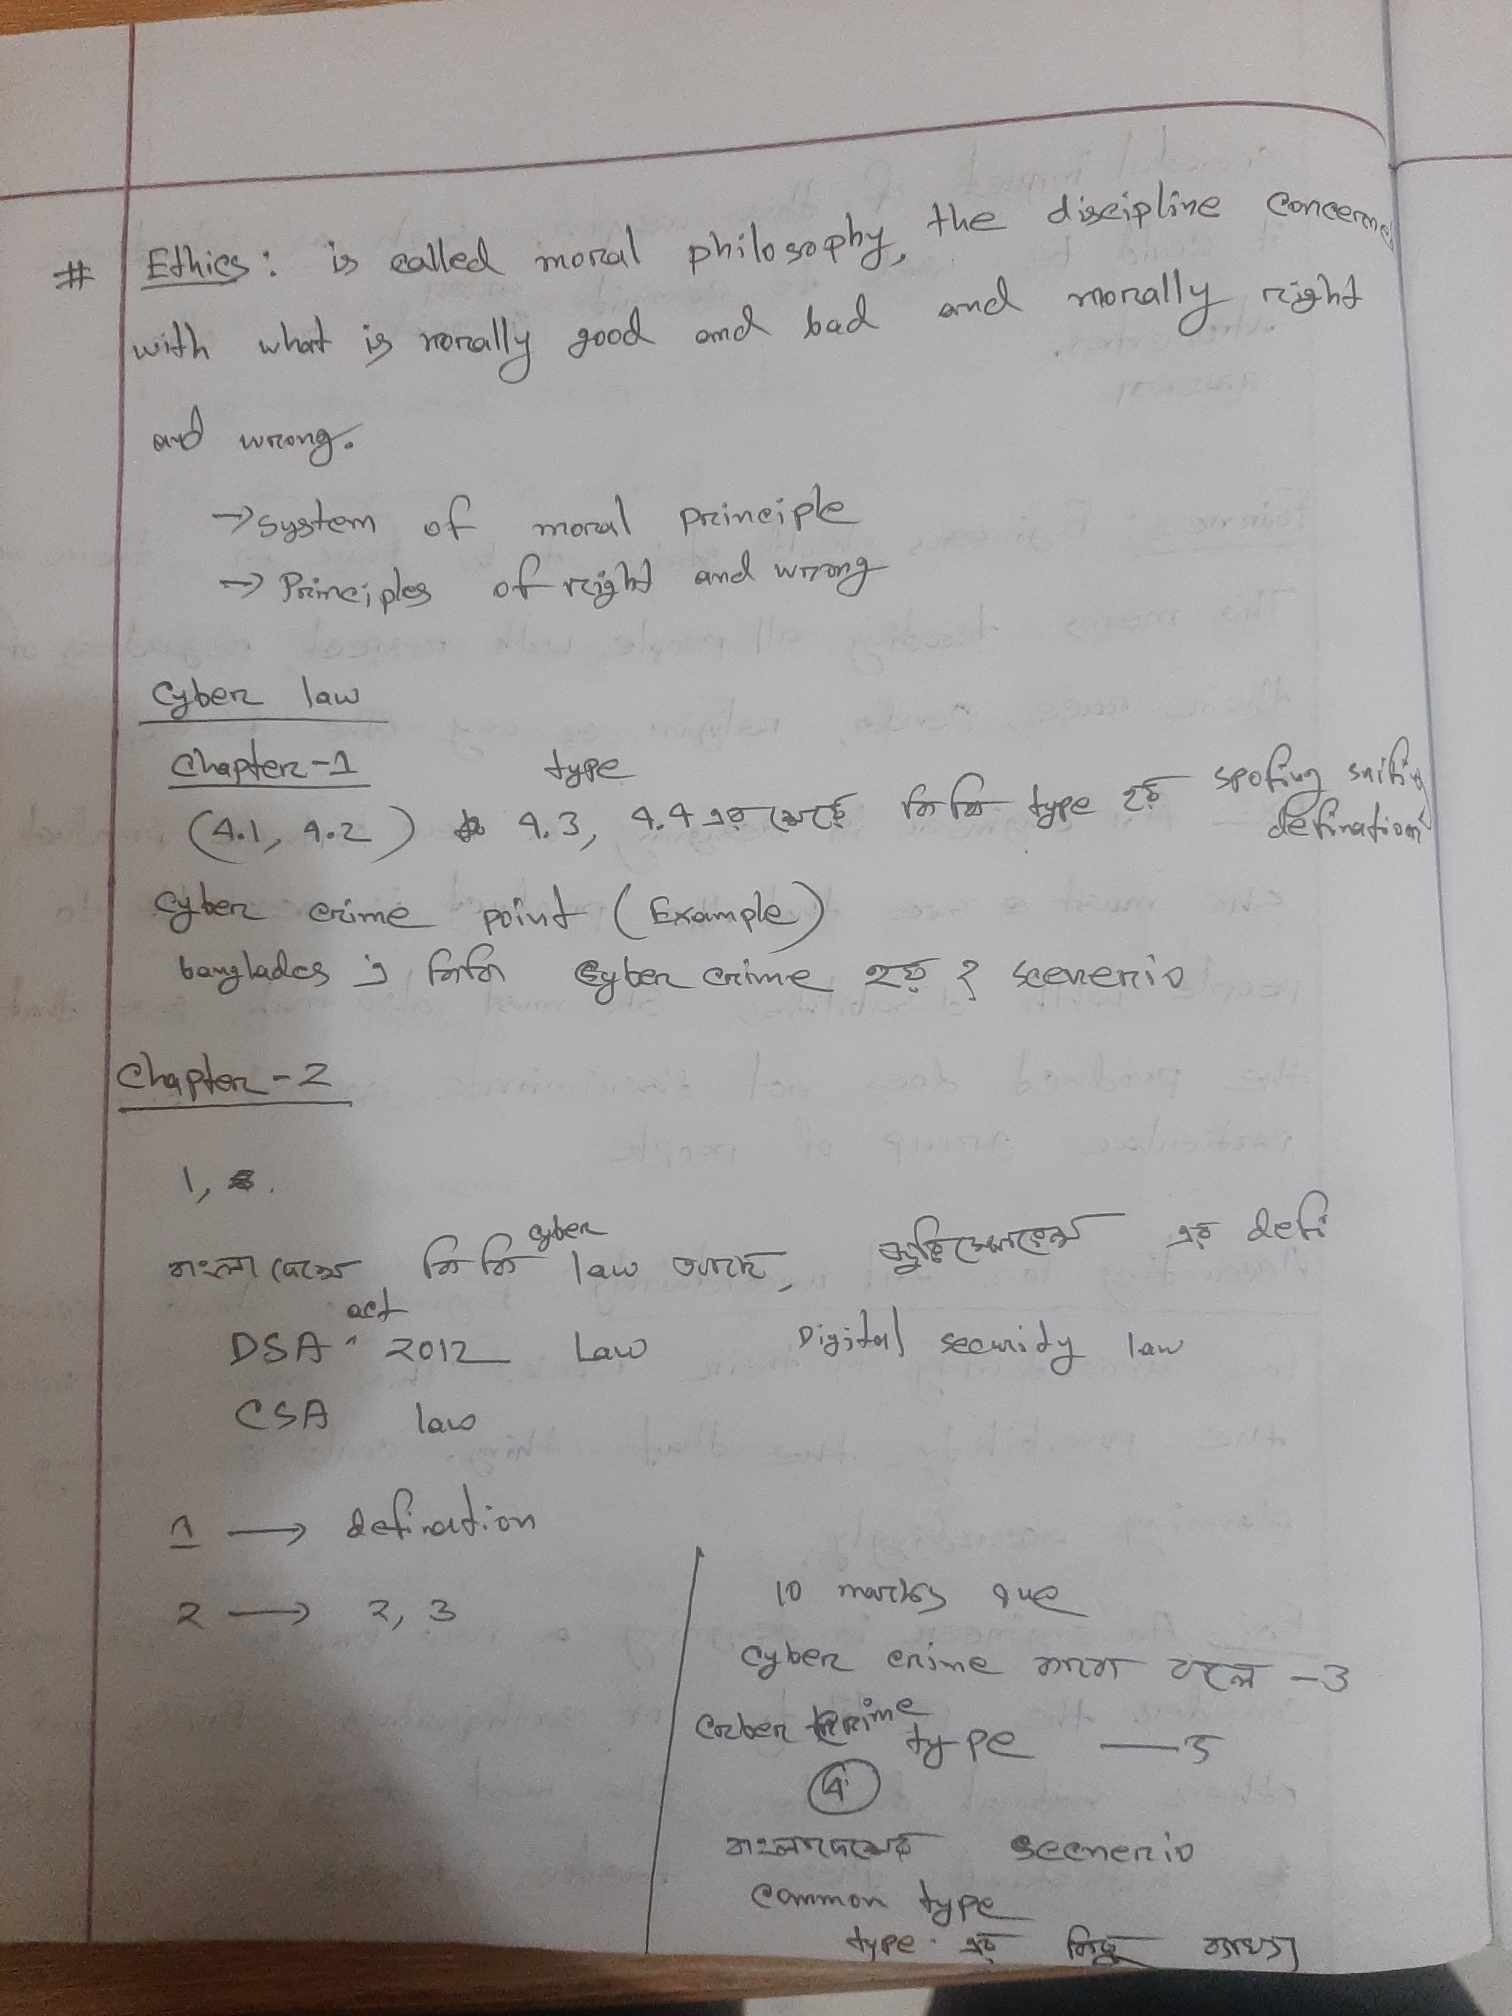 # Ethics: is called moral philosophy, the discipline concerne
with what is morally good and bad and morally right
and wrong.
→ system of moral principle
→ Principles of right and wrong
Cyber law
Chapter-1 type
(4.1, 4.2) 4.3, 4.4 এর কি কি type হয় spofing snifing
defination
Cyber crime point (Example)
banglades এ কি কি Cyber crime হয় ? scenerio
Chapter-2
1,
cyber
বাংলাদেশে কি কি law আছে, এর defi
act
DSA ^ 2012 Law Digital security law
CSA law
1 → defination
2 → 2, 3
10 marks que
Cyber crime কাকে বলে -3
crime
type — 5
4
বাংলাদেশের scenerio
common type
type এর কিছু ব্যাখ্যা